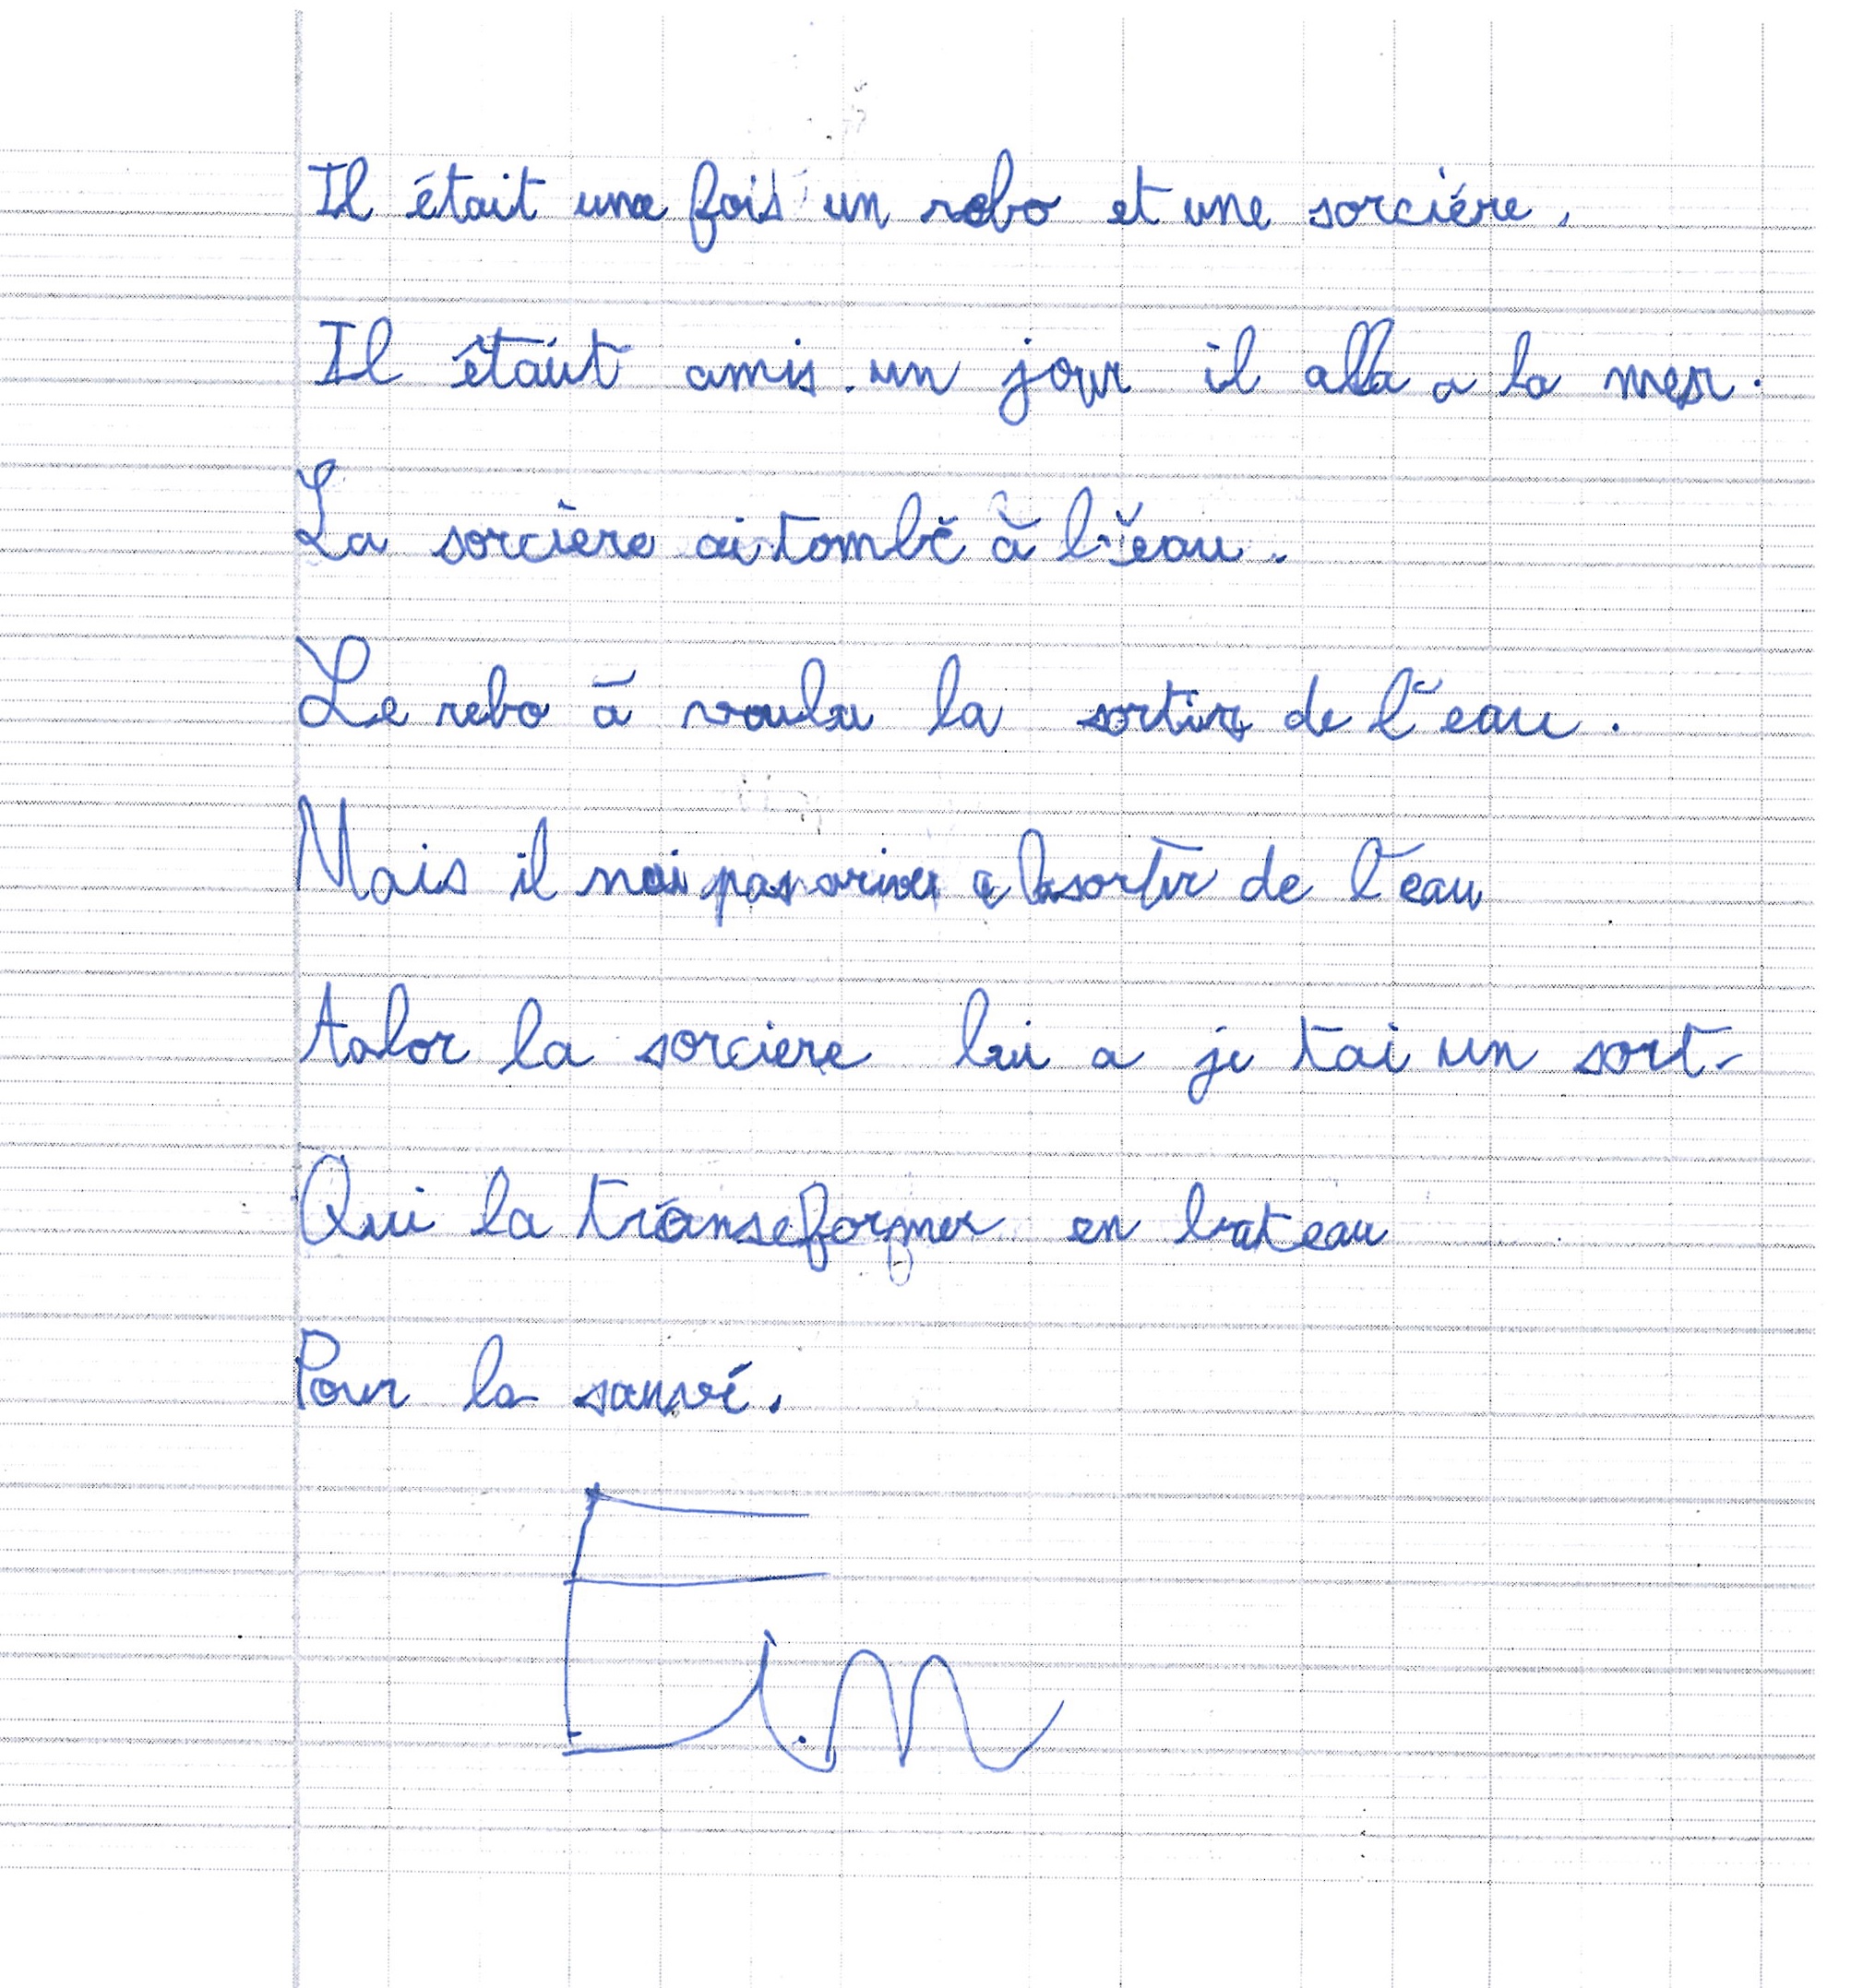 Il était une fois un robo et une sorcière.
Il êtaüt amis. un jour il alla a la mer.
La sorcière ai tombé à l'eau.
Le robo à voulu la sortir de l'eau.
Mais il nai pas ariver a la sortir de l'eau
Aalor la sorciere lui a je tai un sort.
Qui la transeformer en bateau
Pour la sauvé.
Fin